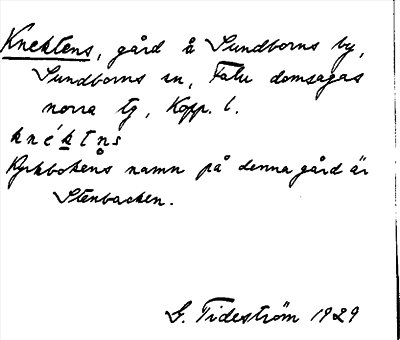 Knektens, gård å Sundborns by,
Sundborns sn, Falu domsagas
norra tg, Kopp. l.
knéktn̥s
Kyrkbokens namn på denna gård är
Stenbacken.
G. Tideström 1929